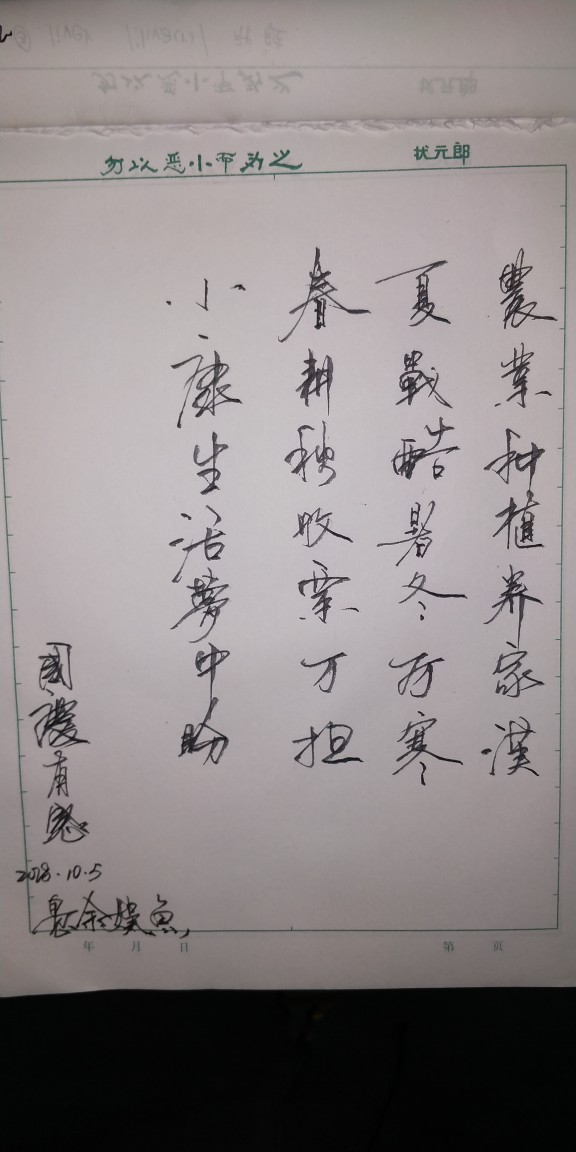 勿以恶小而为之
状元郎
農業种植养家漢
夏戰酷暑冬历寒
春耕秋收粟万担
小康生活夢中盼
國慶有感
10.5
年 月 日
第 页